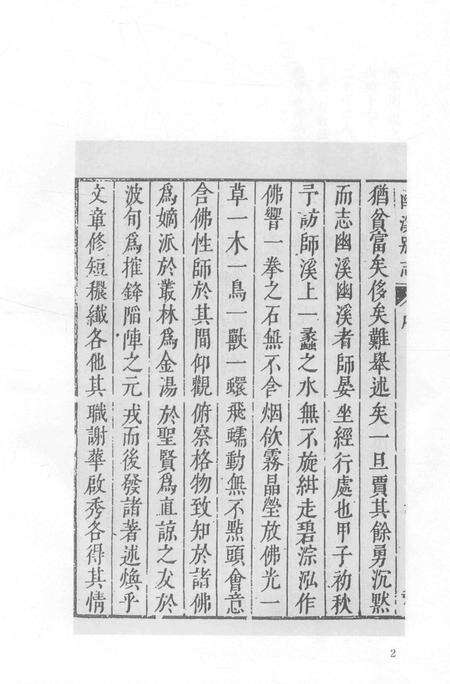 幽溪別志
序
猶貧富矣侈矣難舉述矣一旦賈其餘勇沉黙
而志幽溪幽溪者師晏坐經行處也甲子初秋
予訪師溪上一蠡之水無不旋紺走碧淙泓作
佛響一拳之石無不含烟飲霧晶瑩放佛光一
草一木一鳥一獸一蠉飛蠕動無不點頭會意
含佛性師於其間仰觀俯察格物致知於諸佛
為嫡派於叢林為金湯於聖賢為直諒之友於
波旬為摧鋒陷陣之元戎而後發諸著述煥乎
文章修短穠纖各他其職謝華啟秀各得其情
2